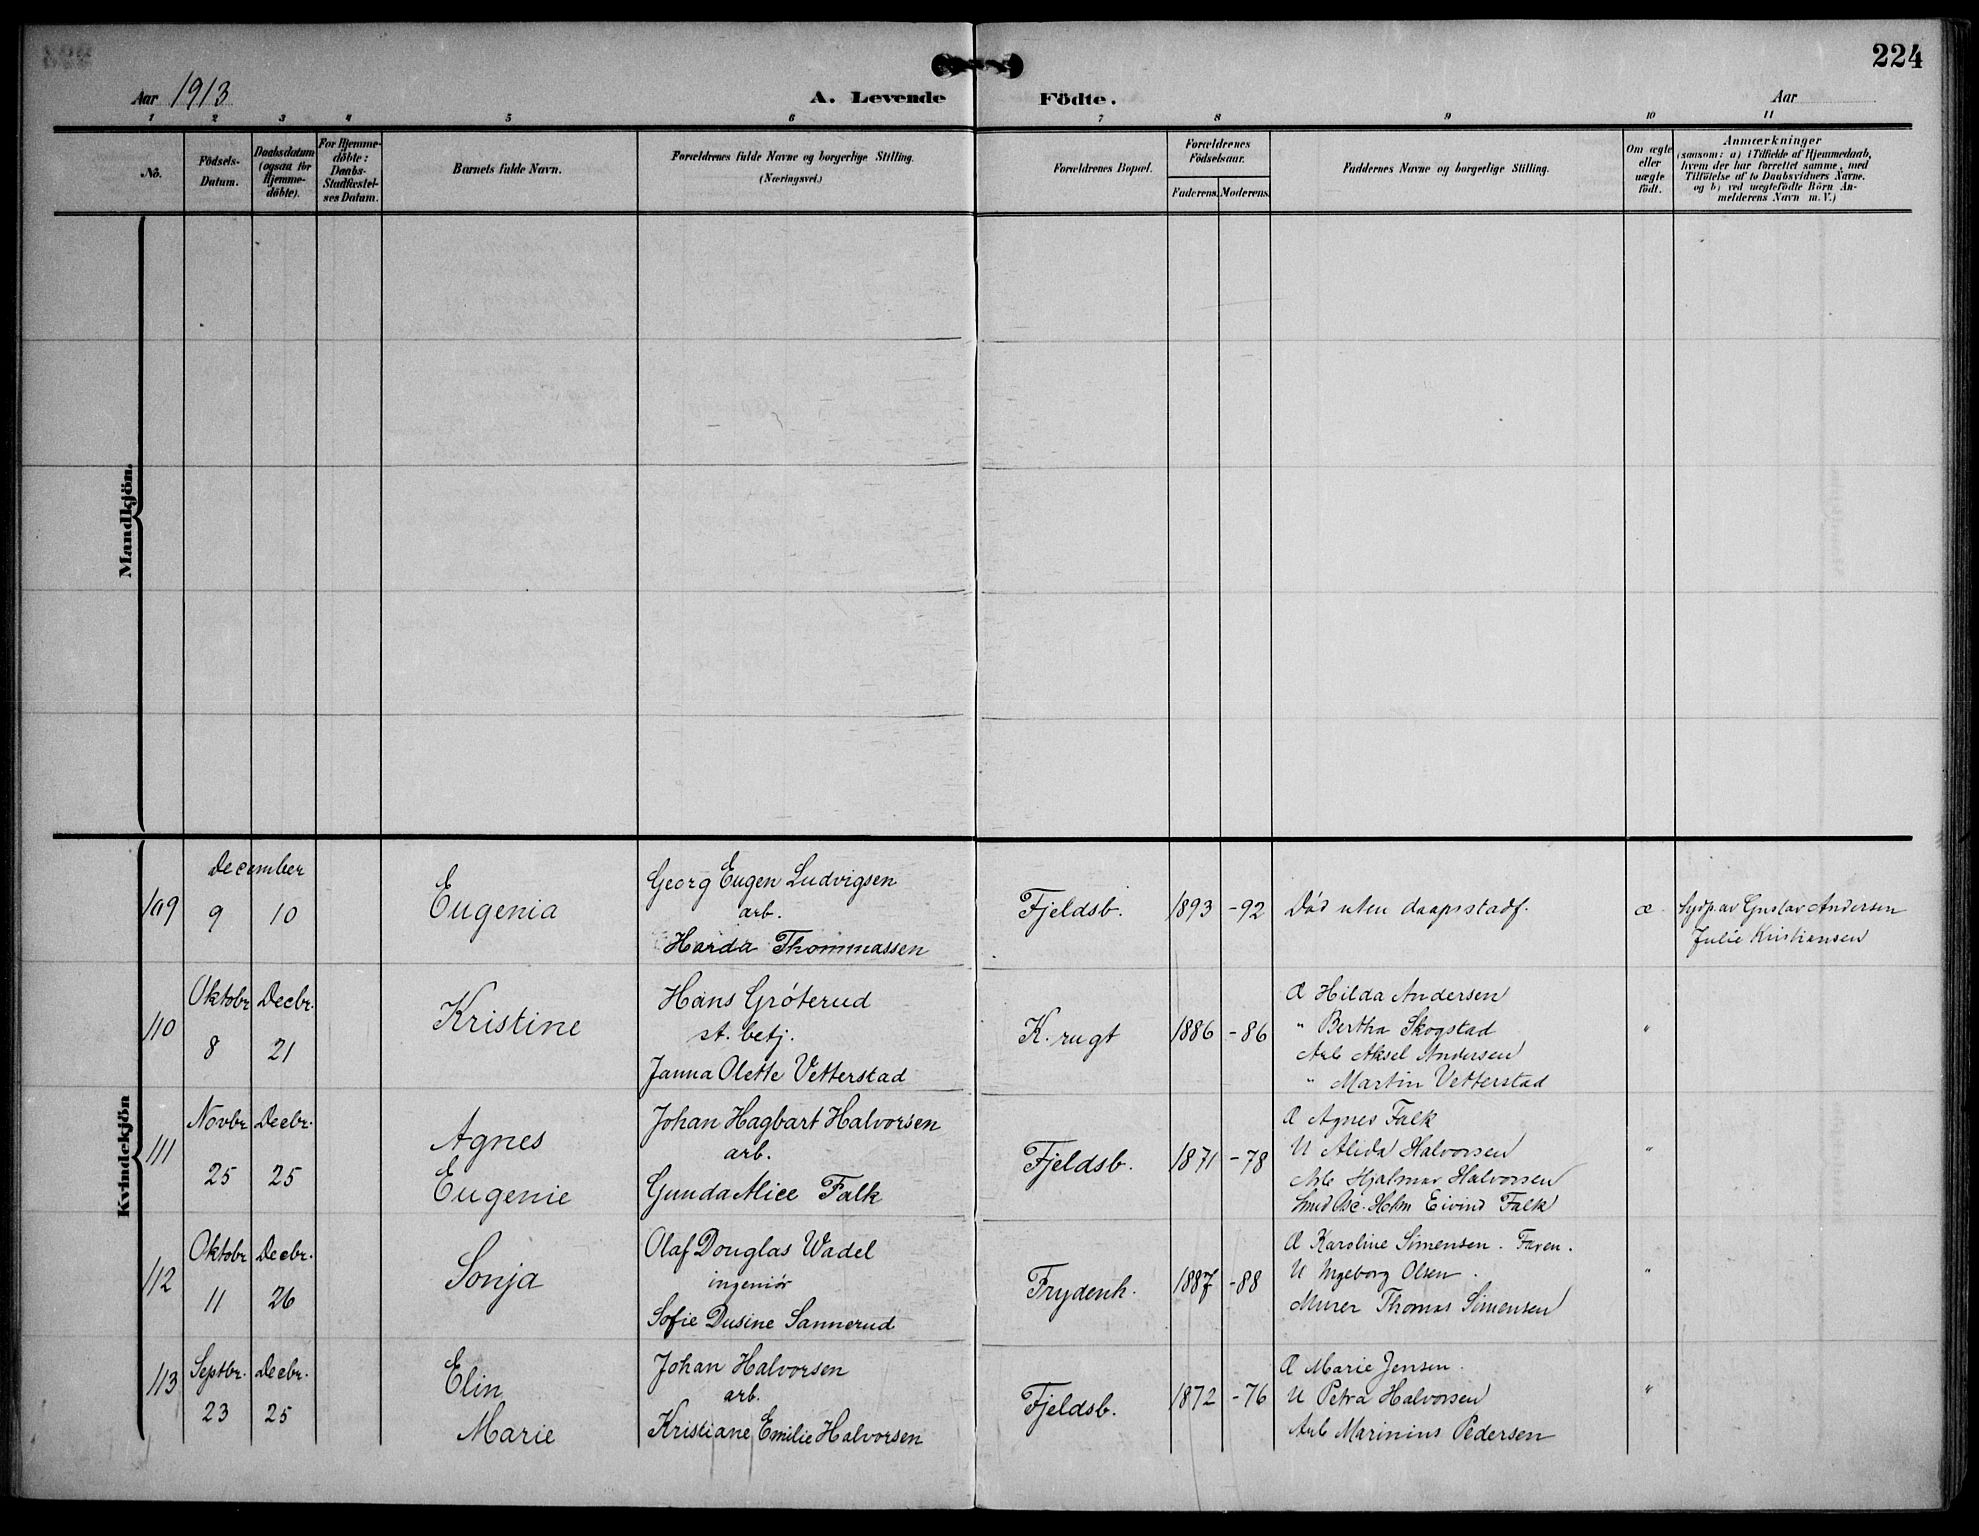 224
Aar 1913
A. Levende Födte.
Aar
1 2 3 4 5 6 7 8 9 10 11
No.
Födsels-
Datum.
Daabsdatum
(ogsaa for
Hjemme-
döbte).
For Hjemme-
döbte:
Daabs-
Stadfæstel-
ses Datum.
Barnets fulde Navn.
Forældrenes fulde Navne og borgerlige Stilling.
(Næringsvei.)
Forældrenes Bopæl.
Forældrenes
Födselsaar.
Faderens. Moderens.
Faddernes Navne og borgerlige Stilling.
Om ægte
eller
uægte
födt.
Anmærkninger
(saasom: a) i Tilfælde af Hjemmedaab,
hvem der har forrettet samme, med
Tilföielse af to Daabsvidners Navne.
og b) ved uægtefödte Börn An-
melderens Navn m. V.)
Mandkjön.
Kvindekjön
109
December
9 10
Eugenia
Georg Eugen Ludvigsen
arb.
Harda Thommassen
Fjeldsb.
1893 -92
Död uten daapsstadf.
æ.
Gustav Andersen
Julie Kristiansen
110
Oktobr Decbr.
8 21
Kristine
Hans Gróterud
st. betj.
Janna Olette Vetterstad
K. rugt
1886 -86
Hilda Andersen
" Bertha Skogstad
Arb Aksel Andersen
" Martin Vetterstad
"
111
Novbr Decbr.
25 25
Agnes
Eugenie
Johan Hagbart Halvorsen
arb.
Gunda Alice Falk
Fjeldsb.
1871 -78
Agnes Falk
U Alida Halvorsen
Arb Hjalmar Halvorsen
Eivind Falk
"
112
Oktobr Decbr.
11 26
Sonja
Olaf Douglas Wadel
ingeniör
Sofie Dusine Sannerud
Frydenh.
1887 -88
Karoline Simensen.
U Ingeborg Olsen.
Murer Thomas Simensen
"
113
Septbr. Decbr.
23 25
Elin
Marie
Johan Halvorsen
arb.
Kristiane Emilie Halvorsen
Fjeldsb.
1872 -76
Marie Jensen.
U Petra Halvorsen
Arb Marinius Pedersen
"